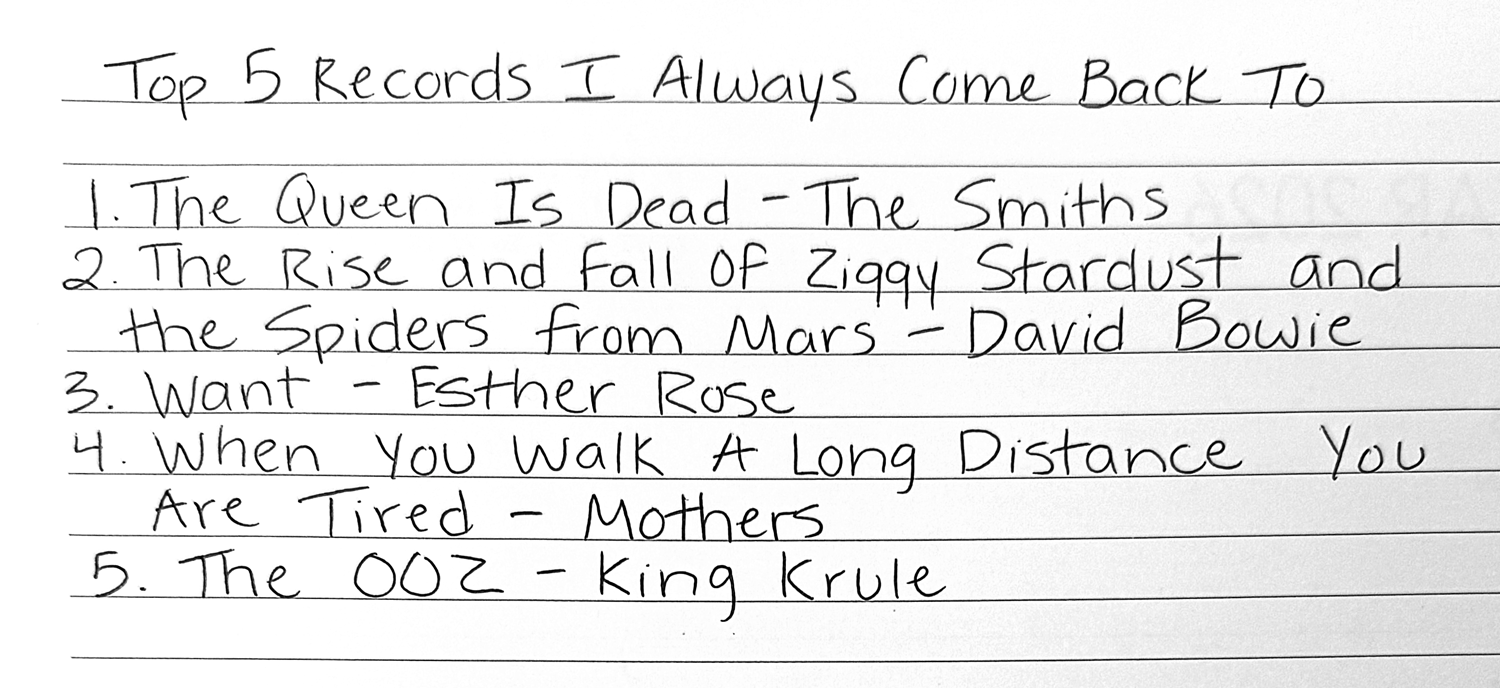 Top 5 Records I Always Come Back To
1. The Queen Is Dead - The Smiths
2. The Rise and Fall Of Ziggy Stardust and
the Spiders from Mars - David Bowie
3. Want - Esther Rose
4. When You Walk A Long Distance You
Are Tired - Mothers
5. The OOZ - King Krule